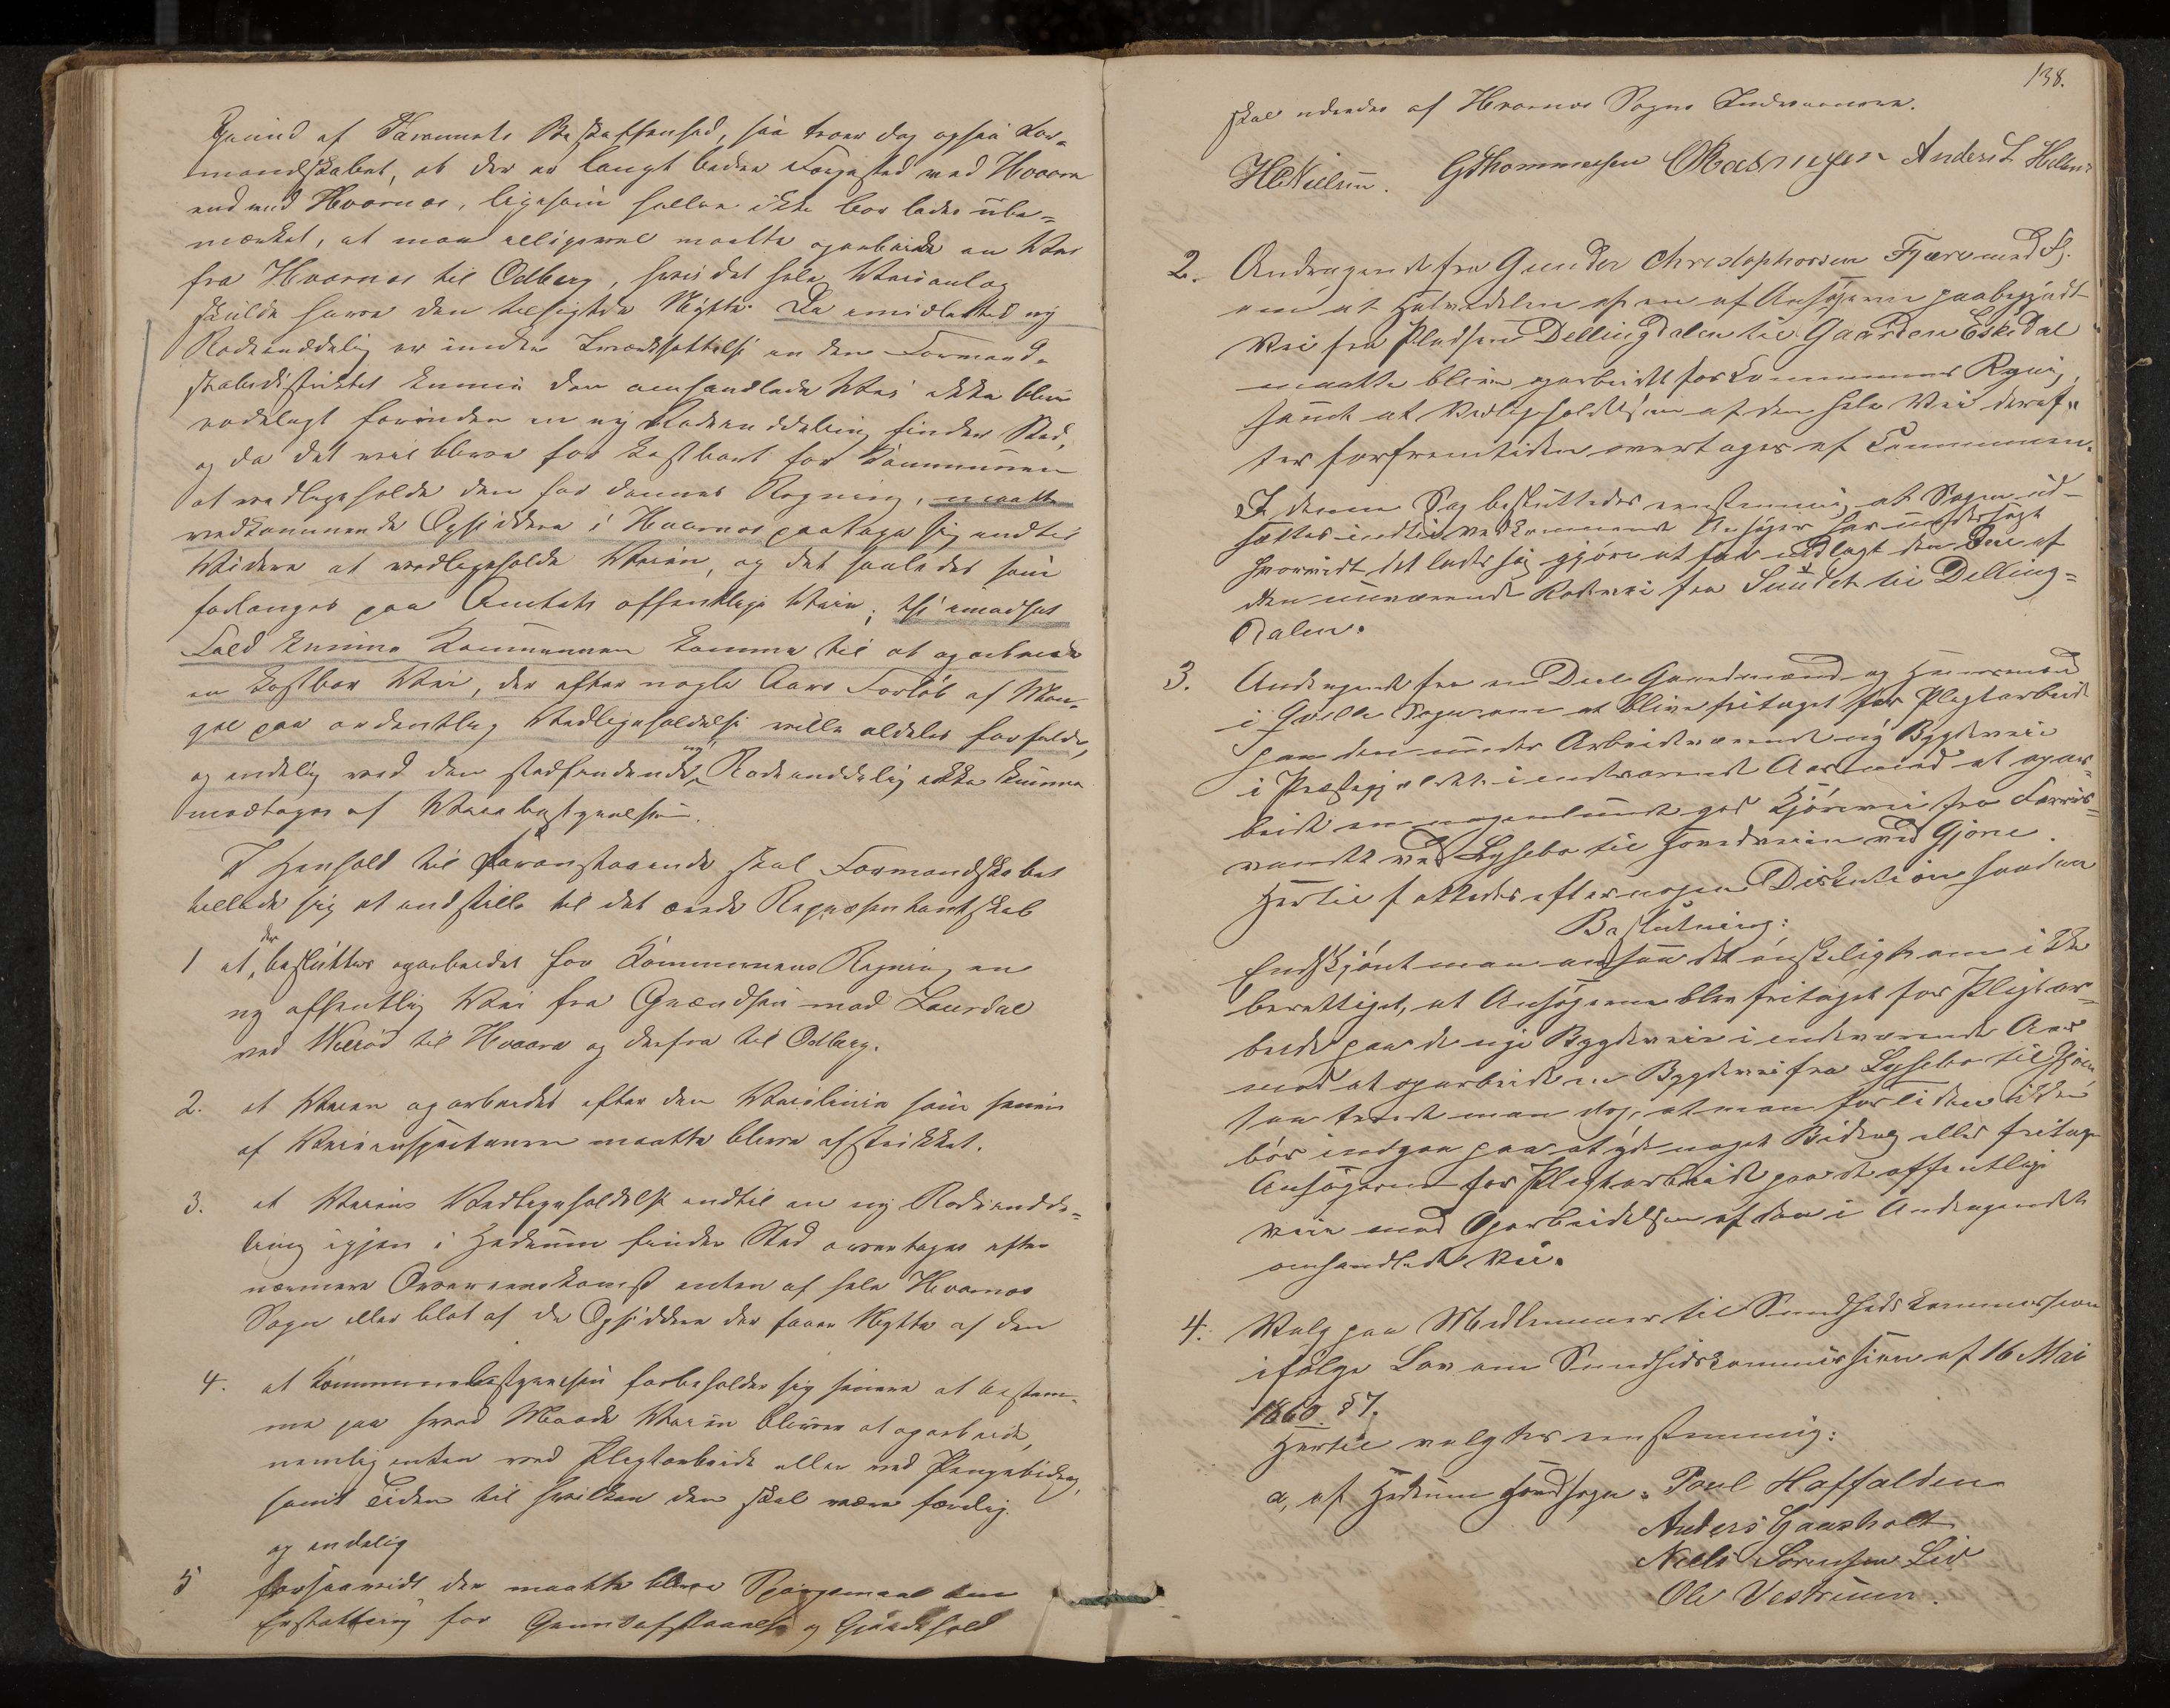 Grund af Farvandets Beskaffenhed, saa troer dog ogsaa For-
mandskabet, at der er langt bedre Færgested ved Hvaara
end ved Hvarnes, ligesom heller ikke bør lades übe-
mærket, at man alligevel maatte oparbeide en Vei
fra Hvarnes til Odberg, hvis det hele Veianlæg
skulde have den tilsigtede Nytte. Da imidlertid ny
Rodeinddeling er under Iværksættelse en den Formand-
skabsdistriktet kunne den omhandlede Vei ikke blive
rodelagt forinden en ny Rodeinddeling finder Sted,
og da det vil blive for kostbart for Kommunen
at vedligeholde den for dennes Regning, maatte
vedkommende Opsiddere i Hvarnes paatage sig indtil
Videre at vedligeholde Veien, og det saaledes som
forlanges paa Amtets offentlige Veie; thi i modsat
Fald kunne Kommunen komme til at oparbeide
en kostbar Vei, der efter nogle Aars Forløb af Man-
gel paa ordentlig Vedligeholdelse ville aldeles forfalde,
og endelig ved den stedfindende ny Rodeinddeling ikke kunne
modtages af Veibestyrelsen.
I Henhold til Foranstaaende skal Formandskabet
tillade sig at indstille til det ærede Repræsentantskab
1 at der besluttes oparbeidet for Kommunens Regning en
ny offentlig Vei fra Grændsen mod Laurdal
ved Wærød til Hvaara og derfra til Odberg.
2. at Veien oparbeides efter den Veilinie som senere
af Veiinspecteuren maatte blive afstikket.
3. at Veiens Vedligeholdelse indtil en ny Rodeindde-
ling igjen i Hedrum finder Sted overtages efter
nærmere Overeenskomst enten af hele Hvarnes
Sogn eller blot af de Opsiddere der faaer Nytte af den
4. at Kommunebestyrelsen forbeholder sig senere at bestem-
me paa hvad Maade Veien bliver at oparbeide,
nemlig enten ved Pligtarbeide eller ved Pengebidrag,
samt Tiden til hvilken den skal være færdig.
og endelig
5 forsaavidt der maatte blive Spørgsmaal om
Erstatning for Grundafstaaelse og Gjærdehold
138.
skal udredes af Hvarnes Sogns Indvaanere.
HCNielsen. GThommesen Anders L Holm
2. Andragende fra Gunder Christophersen Fjære med Fl.
om at Halvdelen af en af Ansøgerne paabegyndt
Vei fra Pladsen Dellingdalen til Gaarden Eskedal
maatte blive oparbeidet for Kommunens Regning,
samt at Vedligeholdelsen af den hele Vei deref-
ter for fremtiden overtages af Communen.
I denne Sag besluttedes eenstemmig at Sagen ud-
sættes indtil vedkommende Ansøger har undersøgt
hvorvidt det lader sig gjøre at faa nedlagt den Deel af
den nuværende Rodevei fra Sundet til Delling-
dalen.
3. Andragende fra en Deel Gaardmænd og Huusmænd
i Qvelle Sogn om at blive fritaget for Pligtarbeide
paa den under Arbeide værende ny Bygdevei
i Præstegjeldet i indeværende Aar mod at opar-
beide en nogenlunde god Kjørevei fra Farris-
vandet ved Lysebo til Hovedveien ved Gjone.
Hertil fattedes efter nogen Diskution saadan
Beslutning:
Endskjønt man ansaa det ønskeligt om ikke
berettiget, at Ansøgerne blev fritaget for Pligtar-
beide paa de nye Bygdeveie i indeværende Aar
mod at oparbeide en Bygdevei fra Lysebo til Gjone,
saa troede man dog, at man for Tiden ikke
bør indgaa paa at yde noget Bidrag eller fritage
Ansøgerne for Pligtarbeide paa de offentlige
Veie mod Oparbeidelsen af den i Andragendet
omhandlede Vei.
4. Valg paa Medlemmer til Sundhedskommissionen
ifølge Lov om Sundhedskommissioner af 16 Mai
1860 §7.
Hertil valgtes eenstemmig:
a, af Hedrum Hovedsogn: Poul Haffalden
Anders Gaasholt
Niels Sørensen Lie
Ole Vestrum.